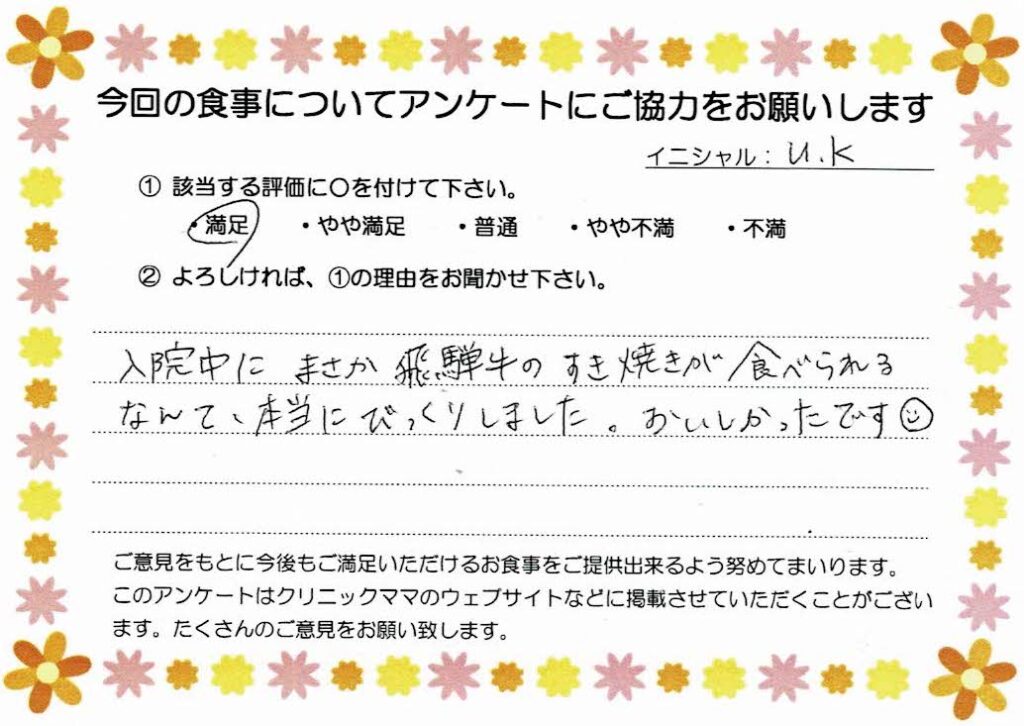 今回の食事についてアンケートにご協力をお願いします
イニシャル：U.K
① 該当する評価に〇を付けて下さい。
・満足 ・やや満足 ・普通 ・やや不満 ・不満
② よろしければ、①の理由をお聞かせ下さい。
入院中に まさか 飛騨牛の すき焼きが 食べられる
なんて、本当にびっくりしました。おいしかったです☺
ご意見をもとに今後もご満足いただけるお食事をご提供出来るよう努めてまいります。
このアンケートはクリニックママのウェブサイトなどに掲載させていただくことがござい
ます。たくさんのご意見をお願い致します。